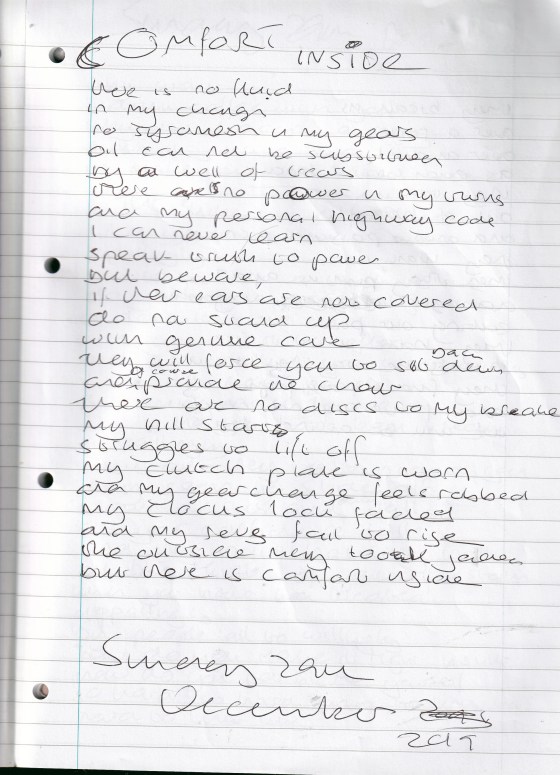 COMFORT INSIDE
there is no fluid
in my change
no sycramesh in my gears
oil can not be substituted
by a well of tears
there is no power in my turns
and my personal highway code
I can never learn
speak truth to power
but beware,
if their ears are not covered
do not stand up
with genuine care
they will force you to sit back down
and of course provide the chair
there are no discs to my breake
my hill starts
struggles to lift off
my clutch plate is worn
and my gearchange feels robbed
my clocks look faded
and my revs fail to rise
the outside may look jaded
but there is comfort inside
Sunday
December
2019